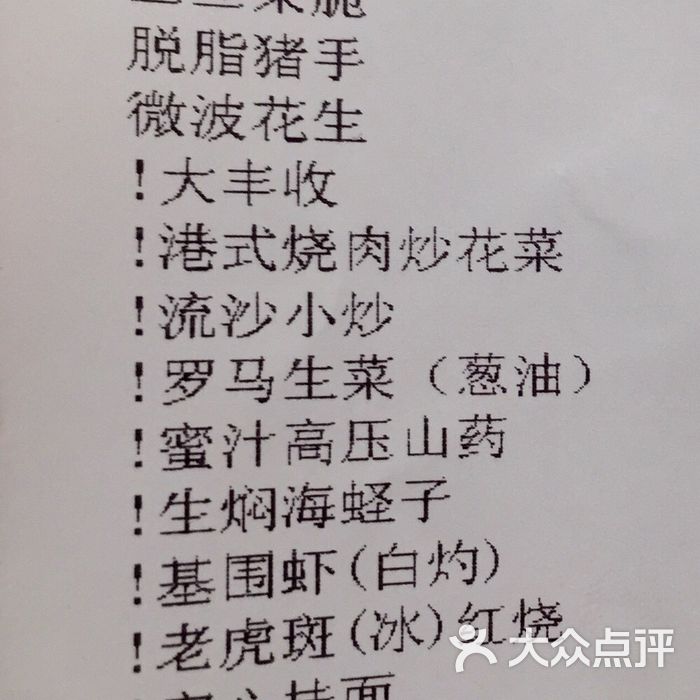 脱脂猪手
微波花生
!大丰收
!港式烧肉炒花菜
!流沙小炒
!罗马生菜（葱油）
!蜜汁高压山药
!生焖海蛏子
!基围虾(白灼)
!老虎斑(冰)红烧
大众点评